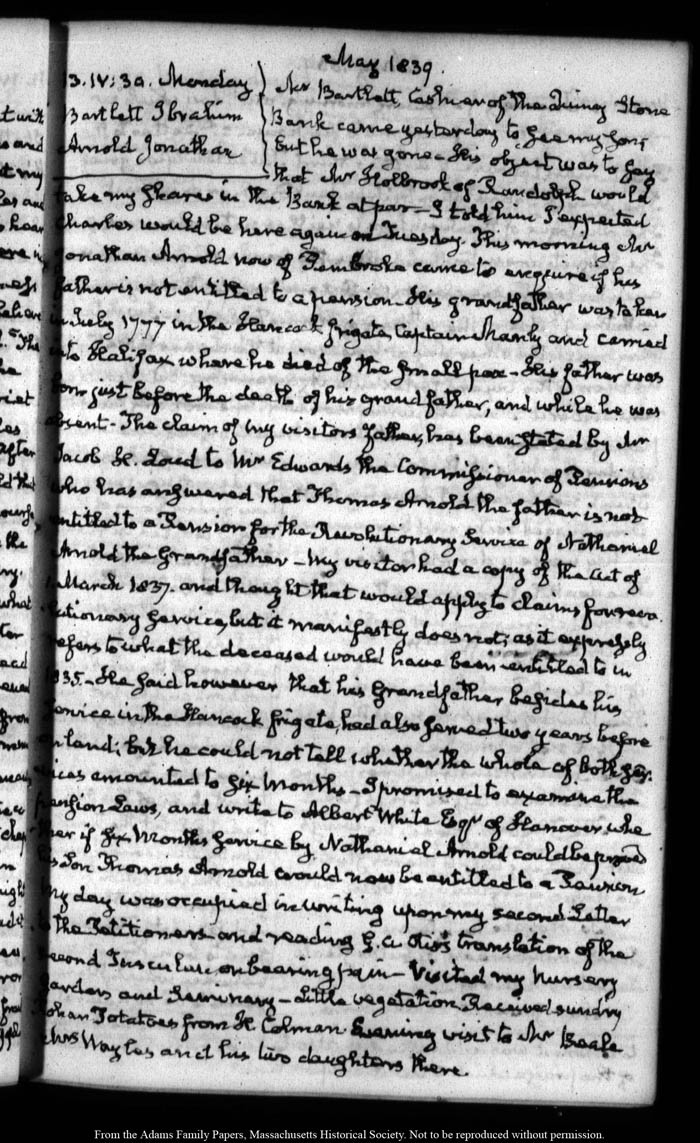 May 1839.
13. IV:30. Monday
Bartlett Ibrahim
Arnold Jonathan
Mr Bartlett, Cashier of the Quincy Stone
Bank came yesterday to see my Son;
but he was gone — His object was to say
that Mr Holbrook of Randolph would
take my shares in the Bank at par — I told him I expected
Charles would be here again on Tuesday. This morning Mr
Jonathan Arnold now of Pembroke came to enquire if his
father is not entitled to a pension — His grandfather was taken
in July 1777 in the Hancock frigate, Captain Manly and carried
into Halifax where he died of the small pox — His father was
born just before the death of his grandfather, and while he was
absent — The claim of my visitors father, has been stated by Mr
Jacob H. Loud to Mr Edwards the Commissioner of Pensions
who has answered that Thomas Arnold the father is not
entitled to a Pension for the Revolutionary Service of Nathaniel
Arnold the Grandfather — My visitor had a copy of the Act of
March 1837. and thought that would apply to claims for revo
lutionary service, but it manifestly does not; as it expressly
refers to what the deceased would have been entitled to in
1835. — He said however that his Grandfather besides his
service in the Hancock frigate, had also served two years before
on land; but he could not tell whether the whole of both ser-
vices amounted to six Months — I promised to examine the
pension Laws, and write to Albert White Esqr of Hanover whe
ther if six Months service by Nathaniel Arnold could be proved
his Son Thomas Arnold would now be entitled to a Pension
My day was occupied in writing upon my second Letter
to the Petitioners and reading G. A. Otis's translation of the
second Tusculan, on bearing pain — Visited my nursery
Gardens and Seminary — Little vegetation. Received sundry
Rohan Potatoes from H. Colman Evening visit to Mr Beale
Mrs Wayles and his two daughters there.
From the Adams Family Papers, Massachusetts Historical Society. Not to be reproduced without permission.